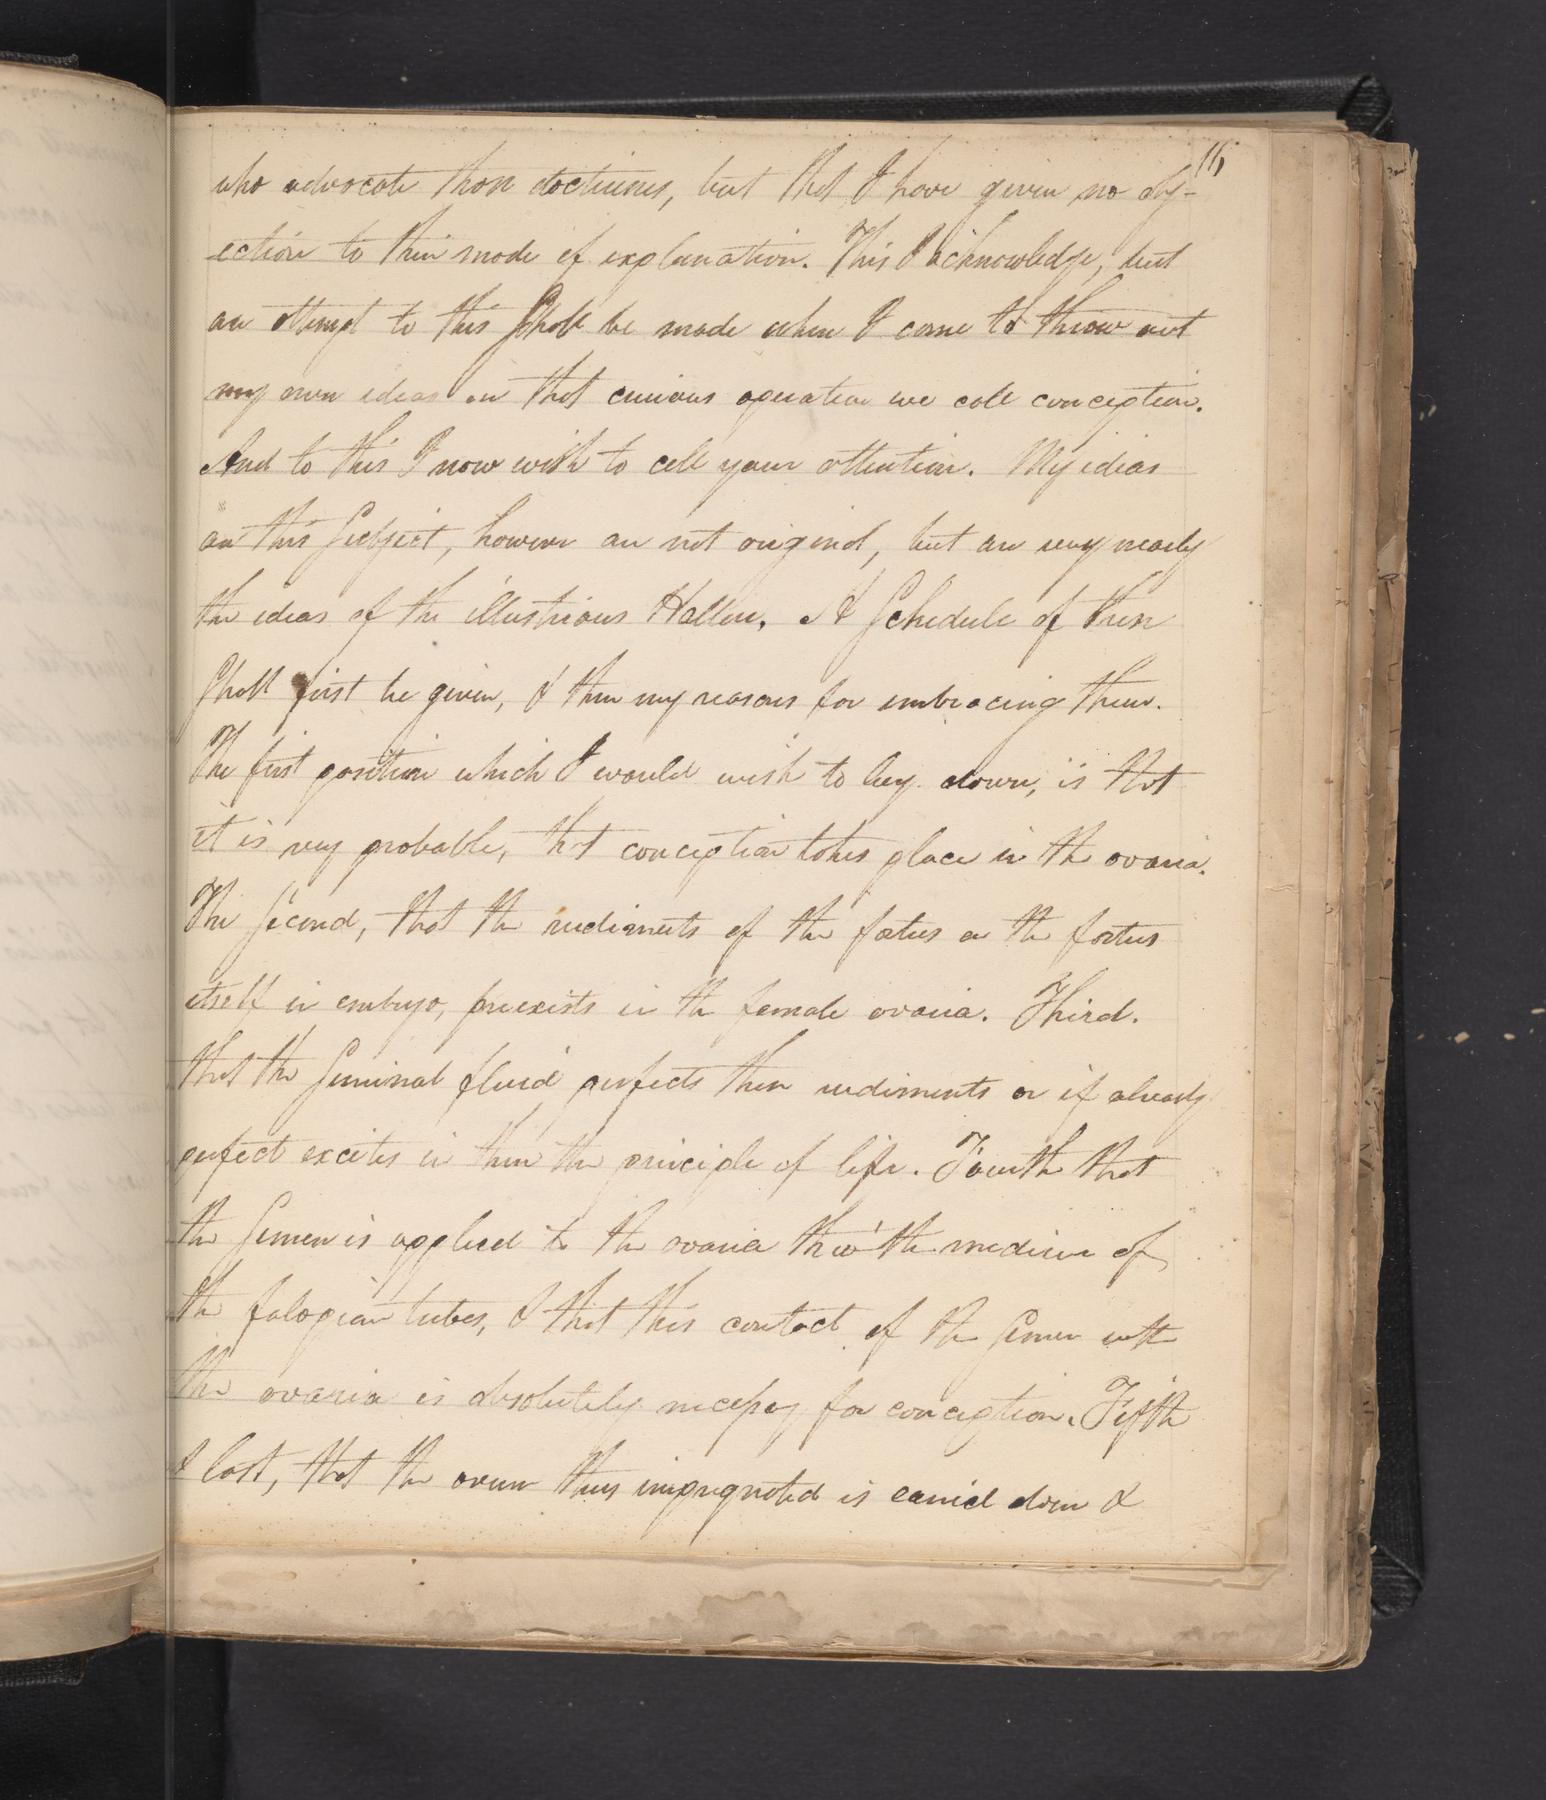 16
who advocate those doctrines, but that I have given no obj-
ection to their mode of explanation. This I acknowledge, but
an attempt to this shall be made when I come to throw out
my own ideas on that curious operation we call conception.
And to this I now wish to call your attention. My ideas
on this Subject, however are not original, but are very nearly
the ideas of the illustrious Haller. A Schedule of these
Shall first be given, & then my reasons for embracing them.
The first position which I would wish to lay down, is that
it is very probable, that conception takes place in the ovaria.
The Second, that the rudiments of the fœtus or the fœtus
itself in embryo, preexists in the female ovaria. Third.
that the Seminal fluid perfects these rudiments or if already
perfect excites in them the principle of life. Fourth that
the Semen is applied to the ovaria thro' the medium of
the falopian tubes, & that this contact of the Semen with
the ovaria is absolutely necessary for conception. Fifth
& last, that the ovum thus impregnated is carried down &